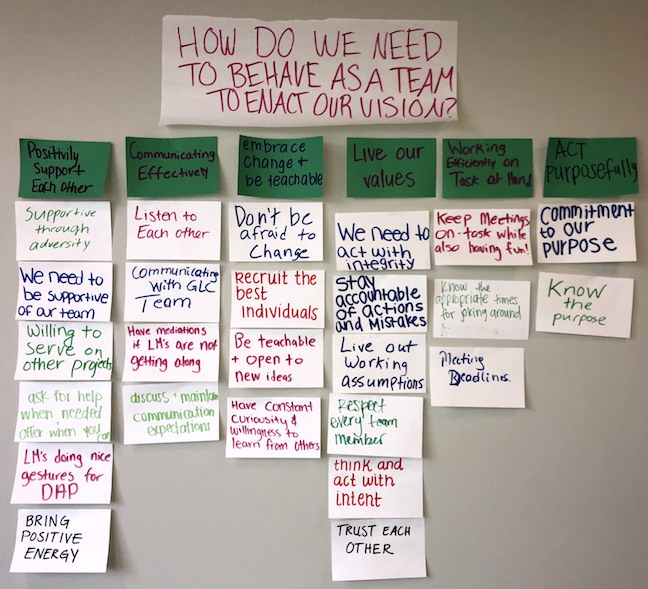 HOW DO WE NEED
TO BEHAVE AS A TEAM
TO ENACT OUR VISION?
Positivily
Support
Each Other
Supportive
through
adversity
We need to
be supportive
of our team
Willing to
serve on
other projects
ask for help
when needed
offer when you can
LM's doing nice
gestures for
DAP
BRING
POSITIVE
ENERGY
Communicating
Effectively
Listen to
Each other
Communicating
with GLC
Team
Have mediations
if LM's are not
getting along
discuss + maintain
communication
expectations
embrace
change +
be teachable
Don't be
afraid to
Change
Recruit the
best
individuals
Be teachable
+ open to
new ideas
Have Constant
curiousity &
willingness to
learn from others
Live our
values
We need to
act with
integrity
Stay
accountable
of actions
and mistakes
Live out
Working
assumptions
Respect
every team
member
think and
act with
intent
TRUST EACH
OTHER
Working
Efficiently on
Task at Hand
Keep Meetings
on-task while
also having fun!
Know the
appropriate times
for joking around
Meeting
Deadlines.
ACT
purposefully
Commitment
to our
purpose
Know
the
purpose